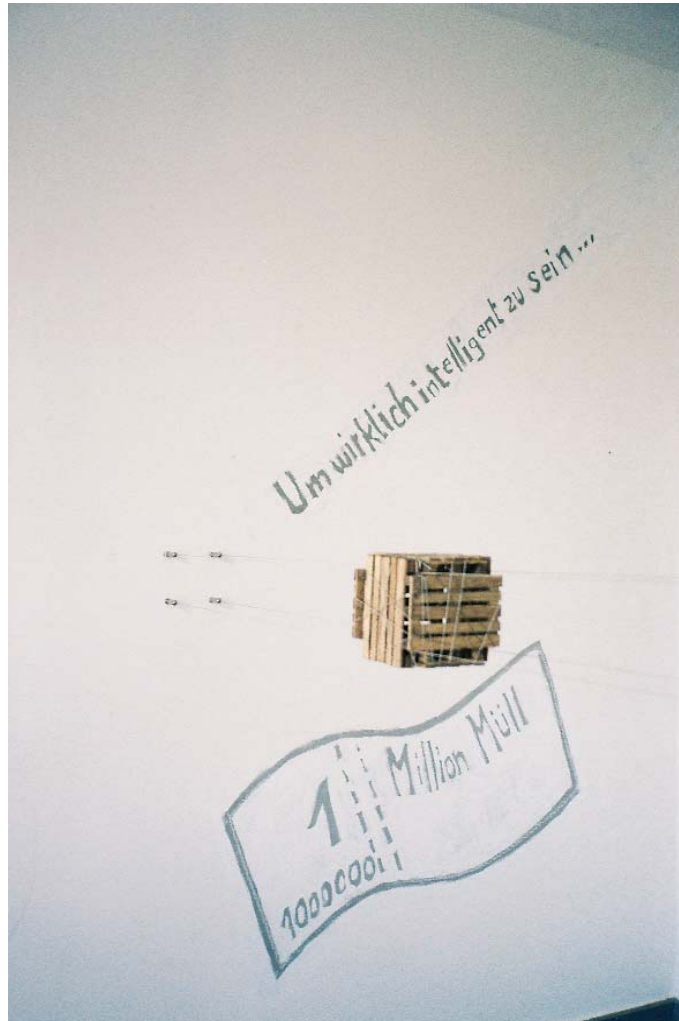 Um wirklich intelligent zu sein...
1 Million Müll
1000000